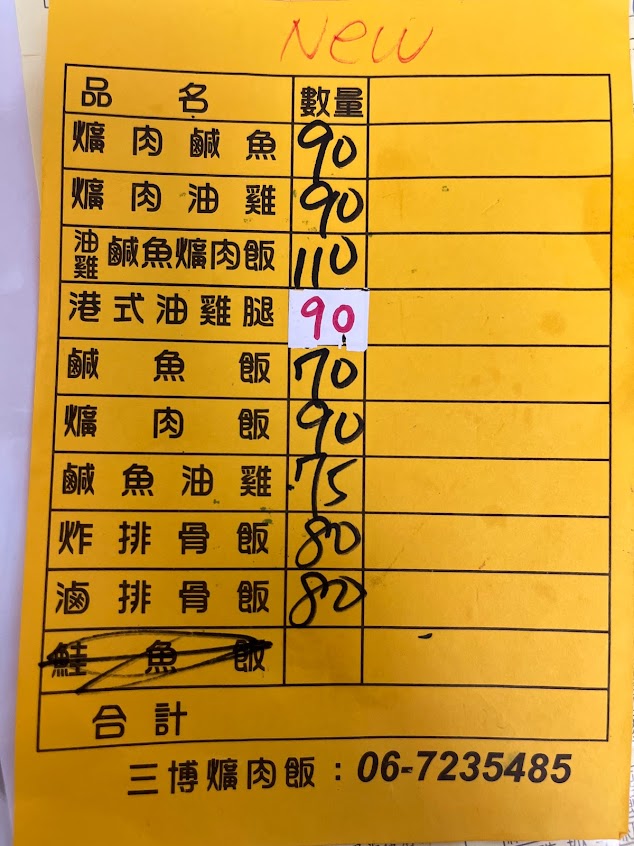 New
品名 數量
爌肉鹹魚 90
爌肉油雞 90
油雞鹹魚爌肉飯 110
港式油雞腿 90
鹹魚飯 70
爌肉飯 90
鹹魚油雞 75
炸排骨飯 80
滷排骨飯 80
鮭魚飯
合計
三博爌肉飯：06-7235485